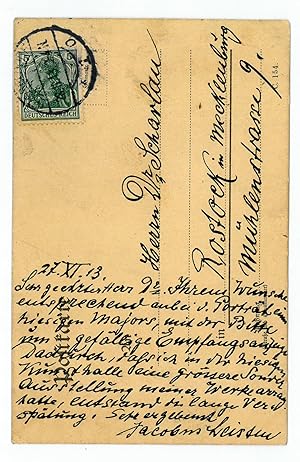 DEUTSCHES REICH
154.
Herrn Dr. Scharlau
Rostock in Mecklenburg
Mühlenstrasse 9.
Postkarte
27. XI. 13.
Sehr geehrter Herr Dr. Ihrem Wunsche
entsprechend anbei d. Porträt
hiesigen Majors, mit der Bitte
um gefällige Empfangsanzeige
Dadurch, daß ich in der hiesigen
Kunsthalle eine grössere Sonder
Ausstellung meiner Werke arran
hatte, entstand die lange Ver
spätung. Sehr ergebenst
Jacobus Leisten